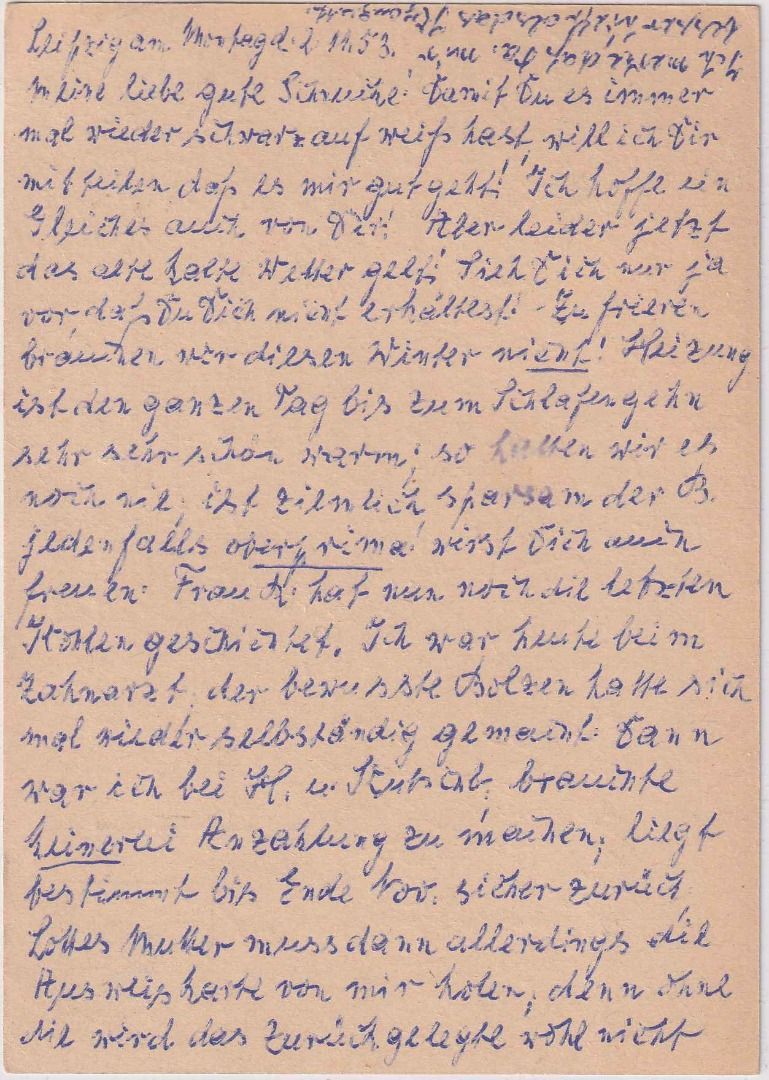 Leipzig am Montag d. 2 11. 53.
Meine liebe gute Schnucke! Damit Du es immer
mal wieder schwarz auf weiß hast, will ich Dir
mitteilen daß es mir gut geht! Ich hoffe ein
Gleiches auch von Dir! Aber leider jetzt
das alte kalte Wetter gelt! Sieh Dich nur ja
vor, daß Du Dich nicht erkältest! Zu frieren
brauchen wir diesen Winter nicht! Heizung
ist den ganzen Tag bis zum Schlafengehn
sehr sehr schön warm; so hatten wir es
noch nie, ist ziemlich sparsam der B.
jedenfalls oberprima! wirst Dich auch
freuen. Frau K. hat nun noch die letzten
Kohlen geschichtet. Ich war heute beim
Zahnarzt, der bewusste Bolzen hatte sich
mal wieder selbständig gemacht. Dann
war ich bei H. u. brauchte
keinerlei Anzahlung zu machen, liegt
bestimmt bis Ende Nov. sicher zurück.
Lottes Mutter muss dann allerdings die
Ausweiskarte von mir holen, denn ohne
die wird das Zurückgelegte wohl nicht